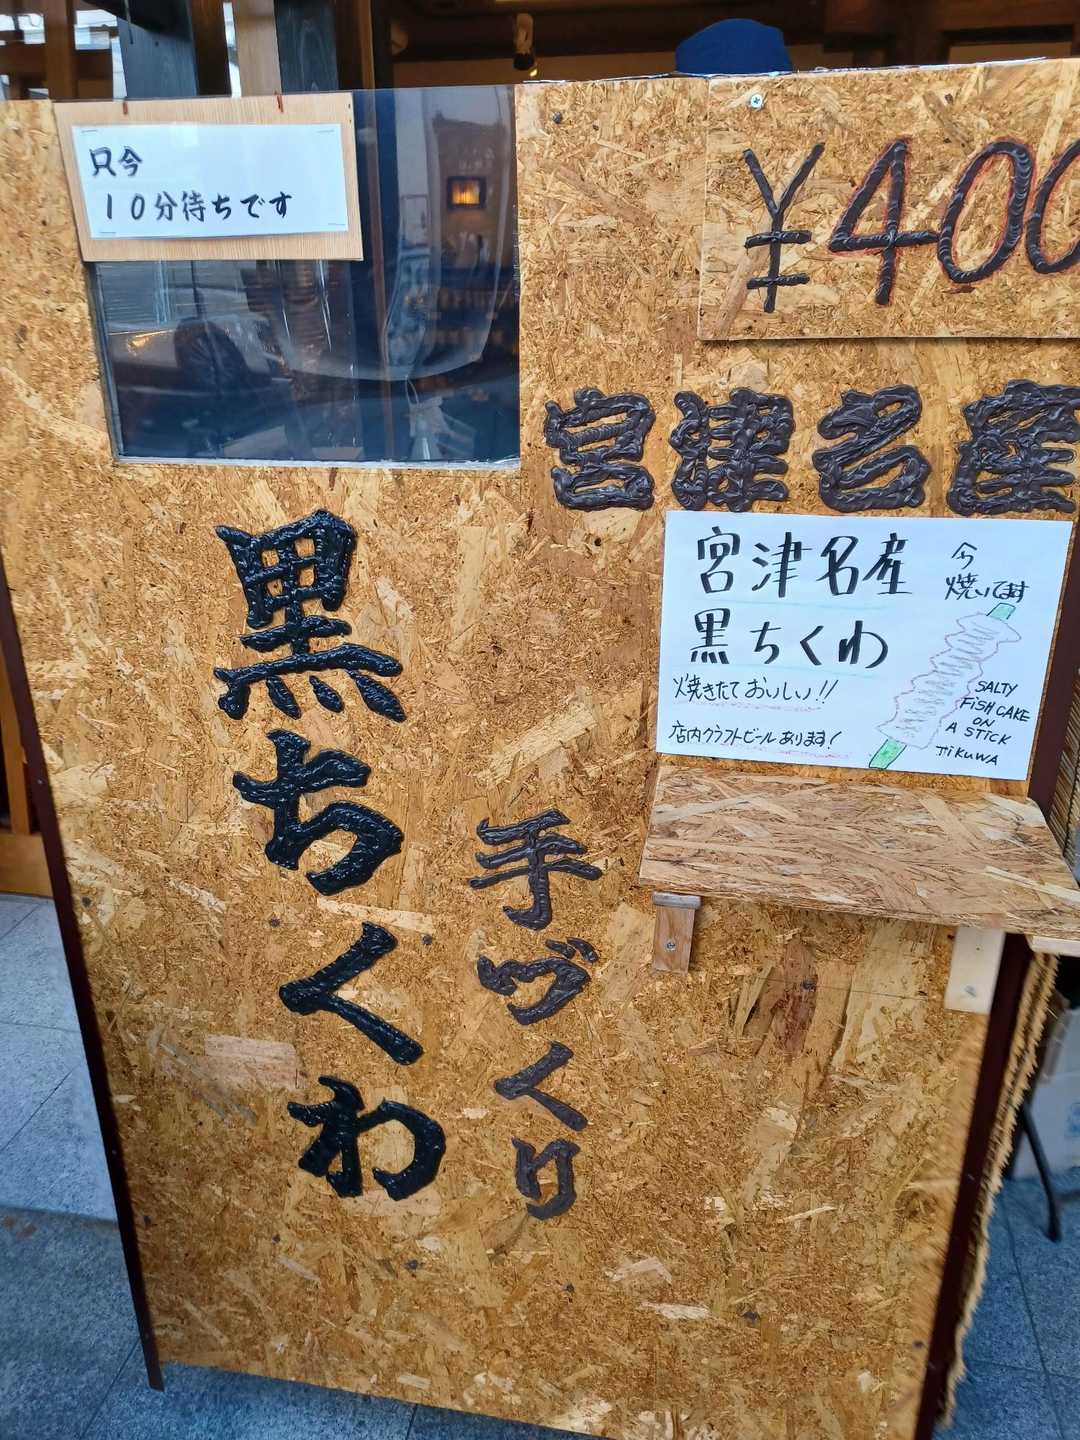 只今
10分待ちです
¥400
宮津名産
黒ちくわ
手づくり
宮津名産
黒ちくわ
今
焼いてます
焼きたておいしい!!
店内クラフトビールあります!
SALTY
FiSH CAKE
ON
A STICK
TiKUWA